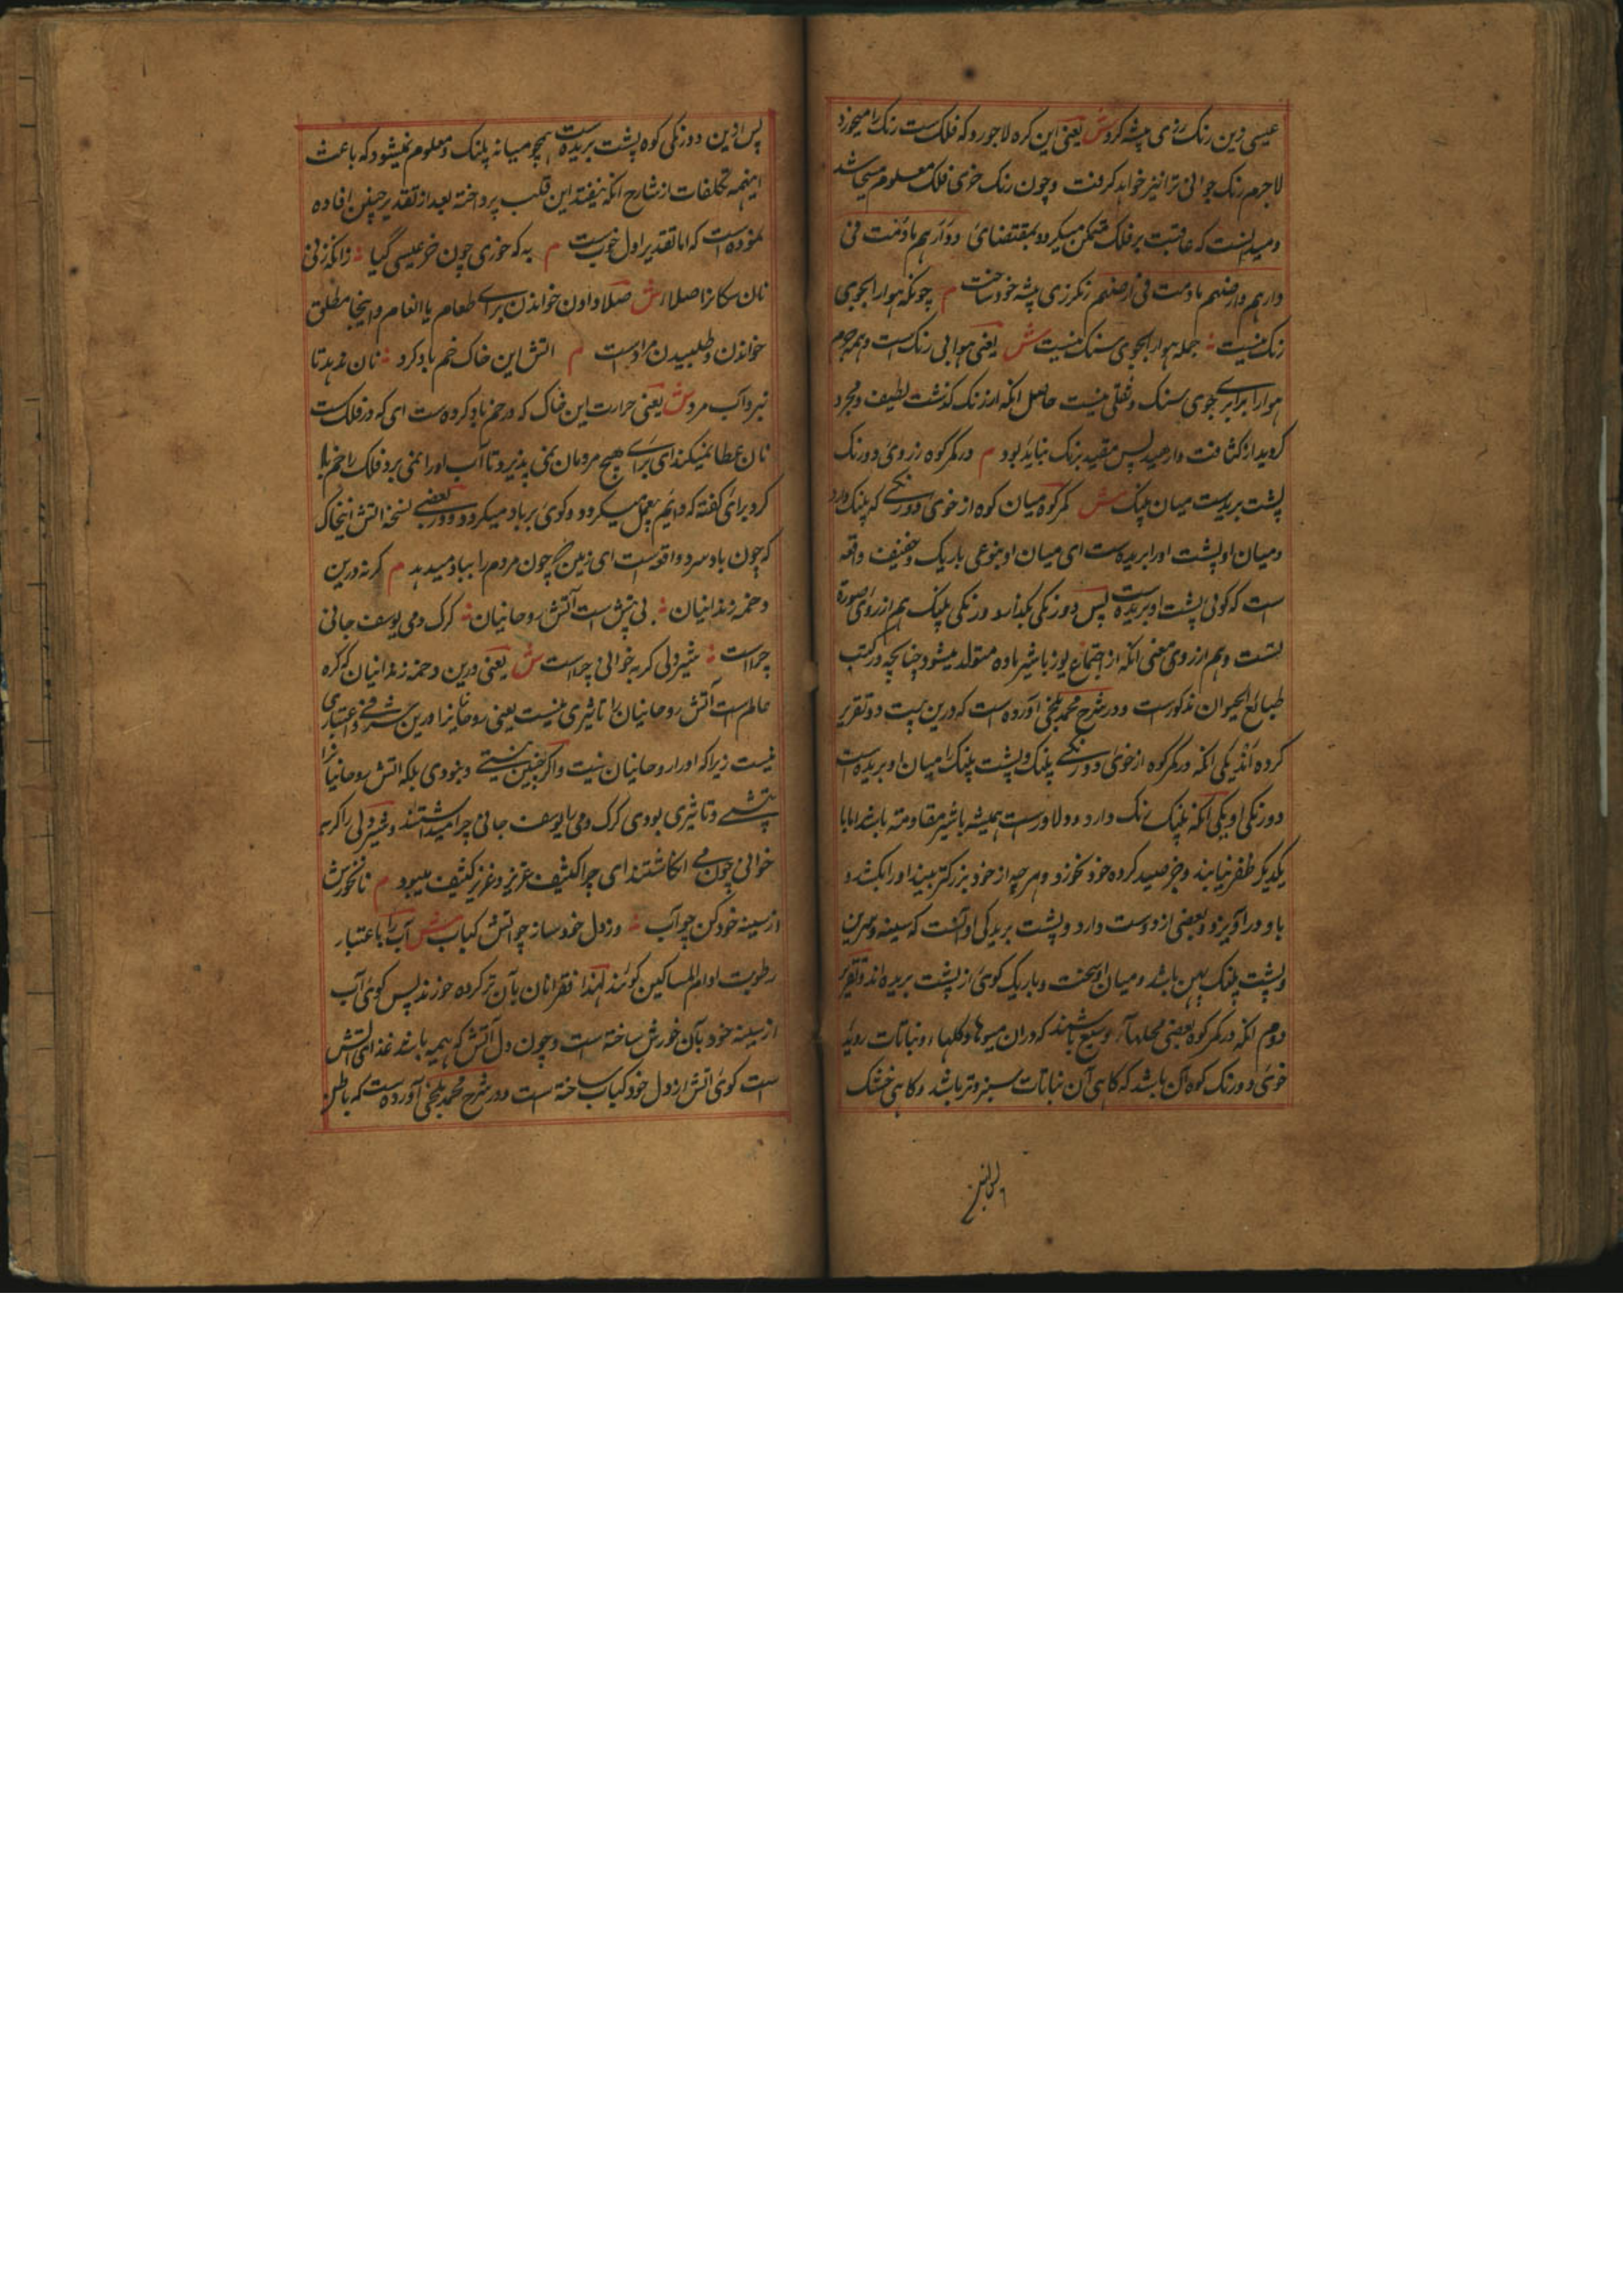 عیسی زین رنک رزی پیشه کرد ش یعنی این کره لاجورد که فلک است رنک را میخورد
لاجرم رنک جوانی ترا نیز خواهد کرفت و چون رنک خری فلک معلوم مسیحا شد
و میدانست که عاقبت بر فلک متمکن میکردد بمقتضای و دارهم مادمت فی
دارهم وارضهم مادمت فی ارضهم رنکرزی پیشه خود ساخت م چونکه هوا را بجوی
رنک نیست جمله هوا را بجوی سنک نیست ش یعنی هوا بی رنک است و همه جرم
هوا را برابر جوی سنک و ثقلی نیست حاصل انکه از رنک کذشت لطیف و مجرد
کردید از کثافت وارهید پس مقید برنک نباید بود م در کمر کوه ز روی دو رنک
پشت بریدست میان پلنک ش کمر کوه میان کوه از خوی دو رنکی که پلنک دارد
و میان او پشت اورا بریده است ای میان او بنوعی باریک و خفیف واقع
است که کوئی پشت او بریده است پس دو رنکی بکذار و دو رنکی پلنک هم از روی صورة
است و هم از روی معنی انکه از اجتماع یوز با شیر ماده متولد میشود چنانچه در کتب
طبائع الحیوان مذکور است و در شرح محمد بلخی آورده است که درین بیت دو تقریر
کرده اند یکی انکه در کمر کوه از خوی دو رنکی پلنک و پشت پلنک را میان او بریده است
دو رنکی او یکی انکه پلنک رنک دارد و دلاور است همیشه با شیر مقاومت باشد اما با
یکدیکر ظفر نیابند و جز صید کرده خود نخورد و هر چه از خود بزرکتر بیند اورا بکشد و
با او در آویزد و بعضی از دوست دارد و پشت بریدکی او آنست که سینه و سرین
و پشت پلنک پهن باشد و میان او سخت و باریک کوئی از پشت بریده اند و تقریر
دوم انکه در کمر کوه بعضی محلها وسیع باشند که دران میوها و کلها و نباتات روید
خوی دو رنک کوه آن باشد که کاهی آن نباتات سبز و تر باشد و کاهی خشک
پس ازین دو رنکی کوه پشت بریده است همچو میانه پلنک و معلوم نمیشود که باعث
اینهمه تکلفات از شارح انکه نیفتد این قلب پرداخته بعد از تقدیر چنین افاده
نموده است که اما تقدیر اول خوب است م به که خوری چون خر عیسی کیا زانکه زنی
نان کسانرا صلا ش صلا دادن خواندن برای طعام یا انعام و اینجا مطلق
خواندن و طلبیدن مراد است م اتش این خاک خم باد کرد نان ندهد تا
نبرد آب مرد ش یعنی حرارت این خاک که در خم باد کرده است ای که در فلک است
نان عطا نمیکند ای برای هیچ مردمان نمی پذیرد تا آب اورا نمی برد فلک را خم باد
کرد برای کفته که دایم بعمل میکردد و کوئی بر باد میکردد و در بعضی نسخه اتش اینخاک
که چون باد سرد واقع است ای زمین چون مردم را بباد میدهد م کرنه درین
دخمه زندانیان بی تپش است آتش روحانیان کرک دمی یوسف جانی
چراست شیردلی کربه خوانی چراست ش یعنی درین دخمه زندانیان که کره
عالم است آتش روحانیان را تاثیری نیست یعنی روحانیانرا درین شرفی و اعتباری
نیست زیراکه اورا روحانیان نیت و اکر چنین نیستی و نبودی بلکه اتش روحانیانرا
تپشی و تاثیری بودی کرک دمی را یوسف جانی چرا میداشتند و شیردلی را کربه
خوانی چون می انکاشتند ای چرا کثیف عزیز و عزیز کثیف میبود م نانخورش
از سینه خود کن چو آب وز دل خود ساز چو آتش کباب ش آب را باعتبار
رطوبت ادام المساکین کویند لهذا فقرا نان بآن تر کرده خورند پس کوئی آب
از سینه خود بآن خورش ساخته است و چون دل آتش که هیمه باشد غذای آتش
است کوئی اتش از دل خود کباب ساخته است و در شرح محمد بلخی آورده است که باطن